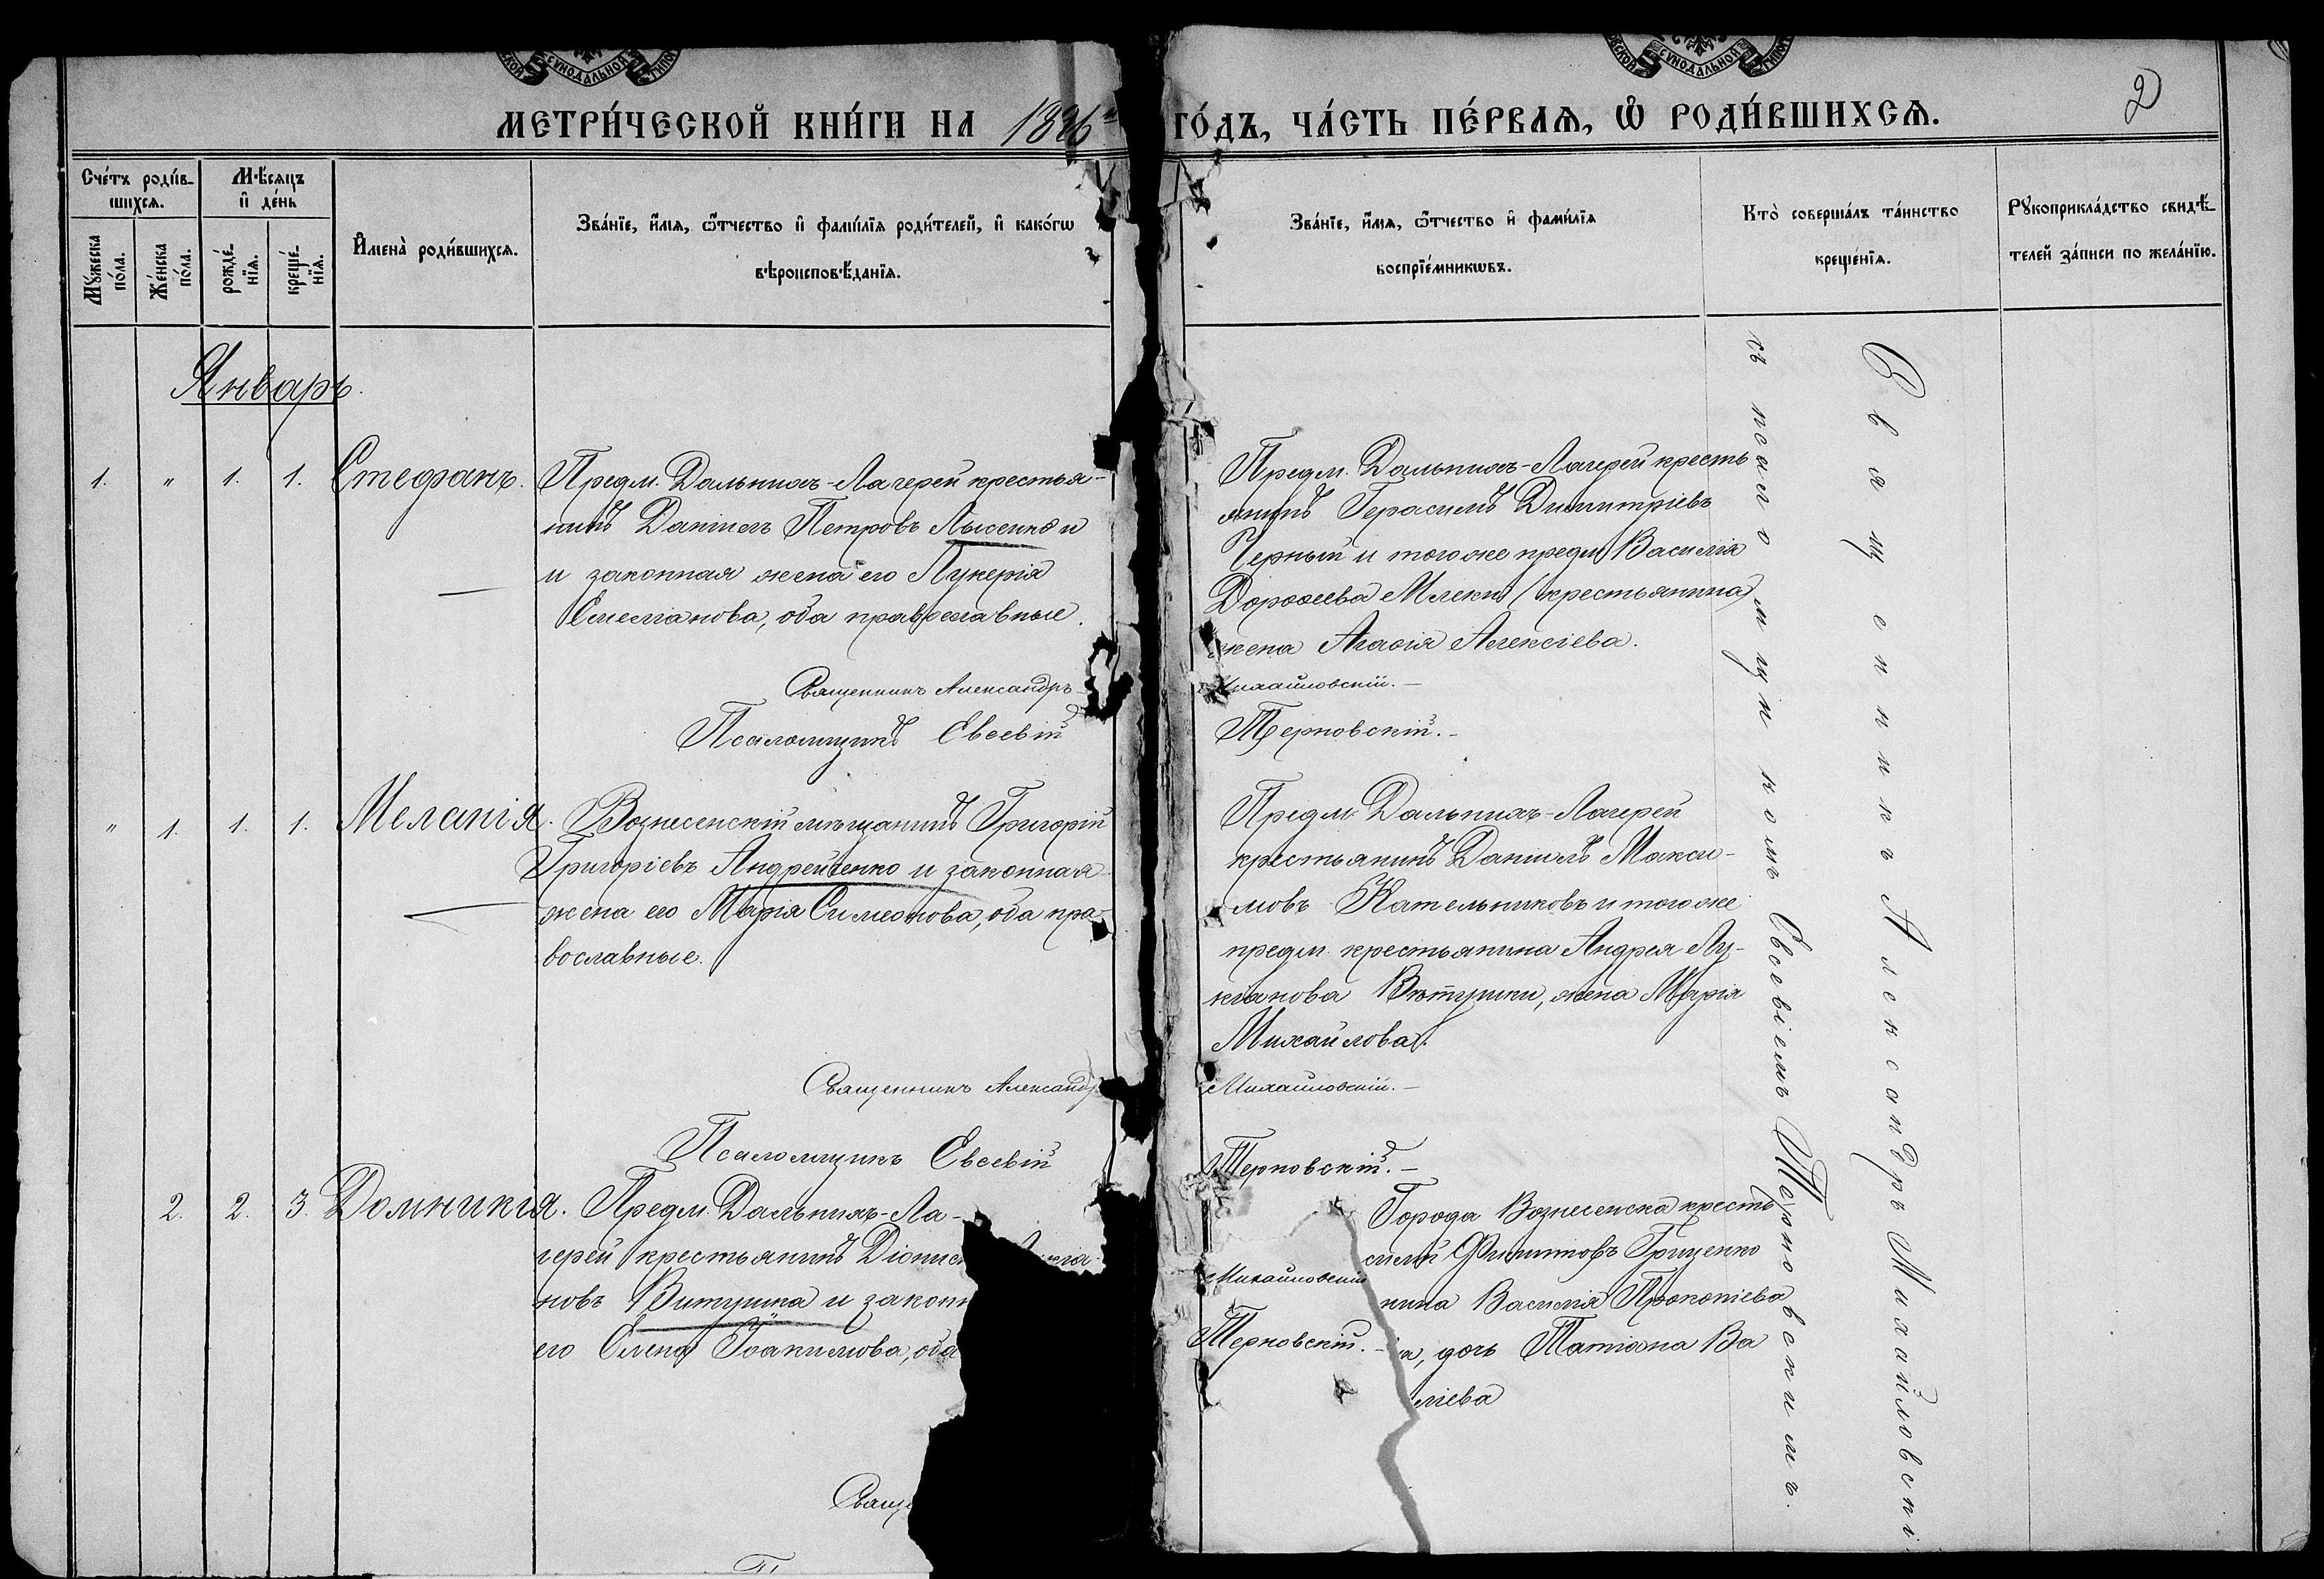 СУНОДАЛЬНОЙ
СУНОДАЛЬНОЙ
2
МЕТРИ́ЧЕСКОЙ КНИ́ГИ НА 18 6 ГО́ДЪ, ЧА́СТЬ ПЕ́РВАѦ, Ѿ РОДИ́ВШИХСѦ.
Сче́тъ роди́в-
шихсѧ.
Мꙋ́жеска по́ла.
Же́нска по́ла.
Мѣ́сѧцъ
и҆ де́нь
рожде́-
нїѧ.
креще́-
нїѧ.
И҆мена̀ роди́вшихсѧ.
Зва́нїе, и҆́мѧ, ѻ҆́тчество и҆ фами́лїѧ роди́телей, и҆ како́гѡ
вѣроисповѣ́данїѧ.
Зва́нїе, и҆́мѧ, ѻ҆́тчество и҆ фами́лїѧ
воспрїе́мникѡвъ.
Кто̀ соверша́лъ та́инство
креще́нїѧ.
Рꙋкоприкла́дство свидѣ́-
телей за́писи по жела́нїю.
Январь.
1. " 1. 1. Стефанъ.
Предм. Дальнихъ-Лагерей крестья-
нинъ Даніилъ Петровъ Лысенко и
и законная жена его Гликерія
Емелианова, оба православные.
Священникъ Александръ
Псаломщикъ Евсевій
Предм. Дальнихъ-Лагерей кресть
янинъ Герасимъ Димитріевъ
Черный и тогоже предм. Василія
Дорофеева (крестьянина)
жена Агафія Алексіева.
Михайловскій.-
Терновскій.-
" 1. 1. 1. Меланія.
Вознесенскій мѣщанинъ Григорій
Григоріевъ Андрейченко и законная
жена его Марія Симеонова, оба пра-
вославные.
Священникъ Александръ
Псаломщикъ Евсевій
Предм. Дальнихъ-Лагерей
крестьянинъ Даніилъ Макси-
мовъ Кательниковъ и тогоже
предм. крестьянина Андрея Лу-
кіанова Витушки, жена Марія
Михайлова.
Михайловскій.-
Терновскій.-
2. 2. 3. Домникія.
Предм. Дальнихъ-Ла-
герей крестьянинъ Діонис
новъ Витушка и законн
его Елена Іоакимова, оба
Свящ
Города Вознесенска кресть
силій Филипповъ Гриценко
Михайловскій
нина Василія Прокопіева
Терновскій.-
а, дочь Татіана Ва
ліева
Священникъ Александръ Михайловскі
съ псаломщикомъ Евсевіемъ Терновскимъ.